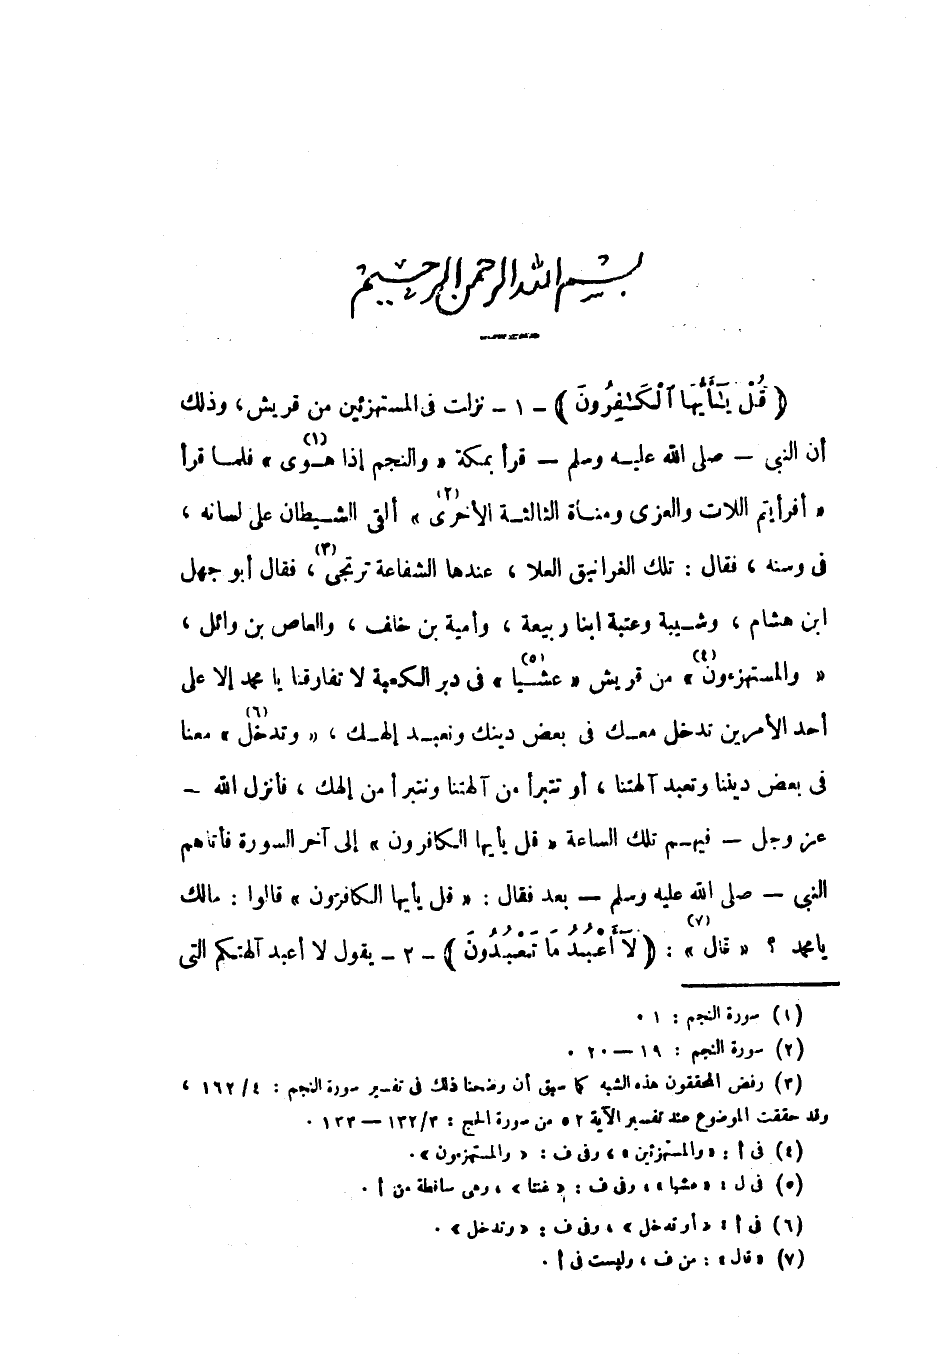 بسم الله الرحمن الرحيم
( قُلْ يَٰٓأَيُّهَا ٱلْكَٰفِرُونَ ) - ١ - نزلت فى المستهزئين من قريش ، وذلك
أن النبى — صلى الله عليه وسلم — قرأ بمكة « والنجم إذا هوى » (١) فلما قرأ
« أفرأيتم اللات والعزى ومناة الثالثة الأخرى » (٢) ألقى الشيطان على لسانه ،
فى وسنه ، فقال : تلك الغرانيق العلا ، عندها الشفاعة ترتجى (٣) ، فقال أبو جهل
ابن هشام ، وشيبة وعتبة ابنا ربيعة ، وأمية بن خلف ، والعاص بن وائل ،
« والمستهزءون » (٤) من قريش « عشيا » (٥) فى دبر الكعبة لا تفارقنا يا محمد إلا على
أحد الأمرين ندخل معك فى بعض دينك ونعبد إلهك ، « وتدخل » (٦) معنا
فى بعض ديننا وتعبد آلهتنا ، أو تتبرأ من آلهتنا ونتبرأ من إلهك ، فأنزل الله —
عز وجل — فيهم تلك الساعة « قل يأيها الكافرون » إلى آخر السورة فأتاهم
النبى — صلى الله عليه وسلم — بعد فقال : « قل يأيها الكافرون » قالوا : مالك
يا محمد ؟ « قال » (٧) : ( لَآ أَعْبُدُ مَا تَعْبُدُونَ ) - ٢ - يقول لا أعبد آلهتكم التى
(١) سورة النجم : ١ .
(٢) سورة النجم : ١٩ — ٢٠ .
(٣) رفض المحققون هذه الشبه كما سبق أن وضحنا ذلك فى تفسير سورة النجم : ٤/ ١٦٢ ،
وقد حققت الموضوع عند تفسير الآية ٥٢ من سورة الحج : ٣/ ١٣٢ — ١٣٣ .
(٤) فى أ : « والمستهزئين » ، وفى ف : « والمستهزءون » .
(٥) فى ل : « عشيا » ، وفى ف : « غنتا » ، وهى ساقطة من أ .
(٦) فى أ : « أو تدخل » ، وفى ف : « وتدخل » .
(٧) « قال » : من ف ، وليست فى أ .